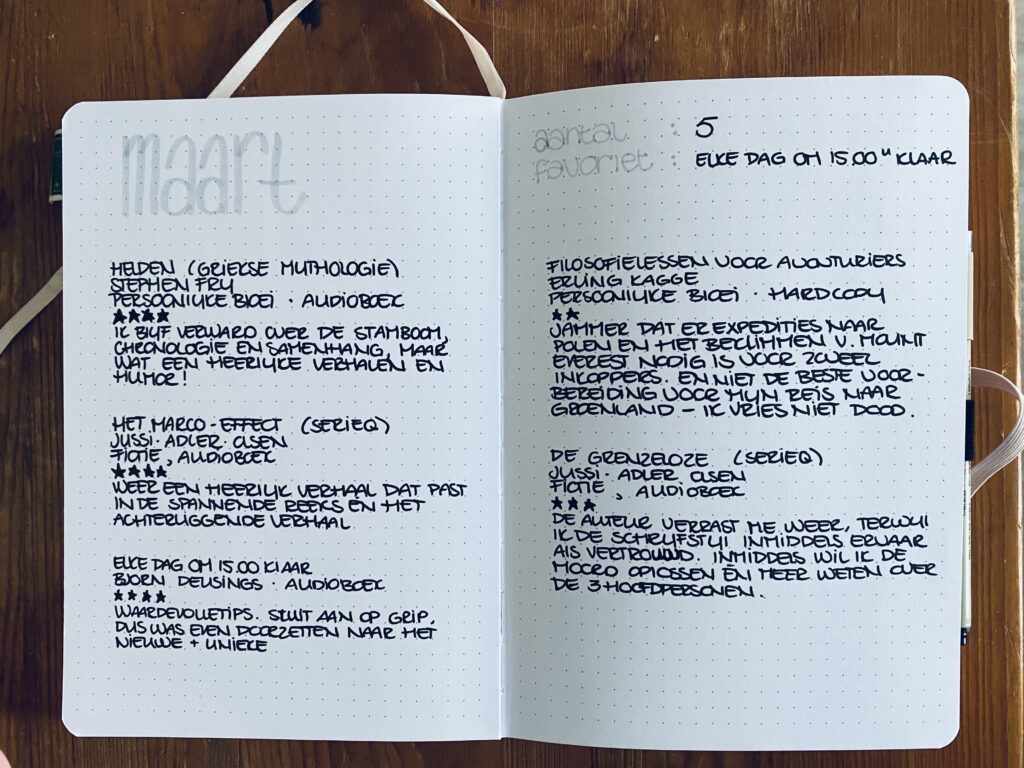 maart
HELDEN (GRIEKSE MYTHOLOGIE)
STEPHEN FRY
PERSOONLIJKE BIOEI · AUDIOBOEK
★★★★
IK BLIJF VERWARD OVER DE STAMBOOM,
CHRONOLOGIE EN SAMENHANG, MAAR
WAT EEN HEERLIJKE VERHALEN EN
HUMOR!
HET MARCO-EFFECT (SERIEQ)
JUSSI·ADLER OLSEN
FICTIE, AUDIOBOEK
★★★★
WEER EEN HEERLIJK VERHAAL DAT PAST
IN DE SPANNENDE REEKS EN HET
ACHTERLIGGENDE VERHAAL
ELKE DAG OM 15.00 KLAAR
BJORN DEUSINGS · AUDIOBOEK
★★★★
WAARDEVOLLE TIPS. SLUIT AAN OP GRIP,
DUS WAS EVEN DOORZETTEN NAAR HET
NIEUWE + UNIEKE
aantal : 5
favoriet : ELKE DAG OM 15.00 u KLAAR
FILOSOFIELESSEN VOOR AVONTURIERS
ERLING KAGGE
PERSOONLIJKE BIOEI · HARDCOPY
★★
JAMMER DAT ER EXPEDITIES NAAR
POLEN EN HET BEKLIMMEN V. MOUNT
EVEREST NODIG IS VOOR ZOVEEL
INKOPPERS. EN NIET DE BESTE VOOR-
BEREIDING VOOR MIJN REIS NAAR
GROENLAND – IK VRIES NIET DOOD.
DE GRENZELOZE (SERIEQ)
JUSSI· ADLER OLSEN
FICTIE, AUDIOBOEK
★★★
DE AUTEUR VERRAST ME WEER, TERWIJL
IK DE SCHRIJFSTIJL INMIDDELS ERVAAR
ALS VERTROUWD. INMIDDELS WIL IK DE
MOORD OPLOSSEN ÉN MEER WETEN OVER
DE 3 HOOFDPERSONEN.